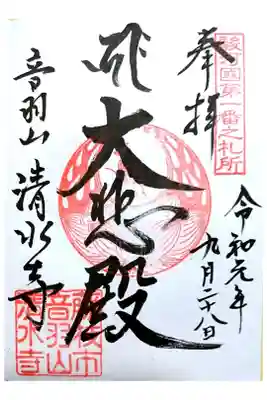 駿河國第一番之札所
奉拝
令和元年
九月二十八日
大悲殿
音羽山 清水寺
音羽山
清水寺